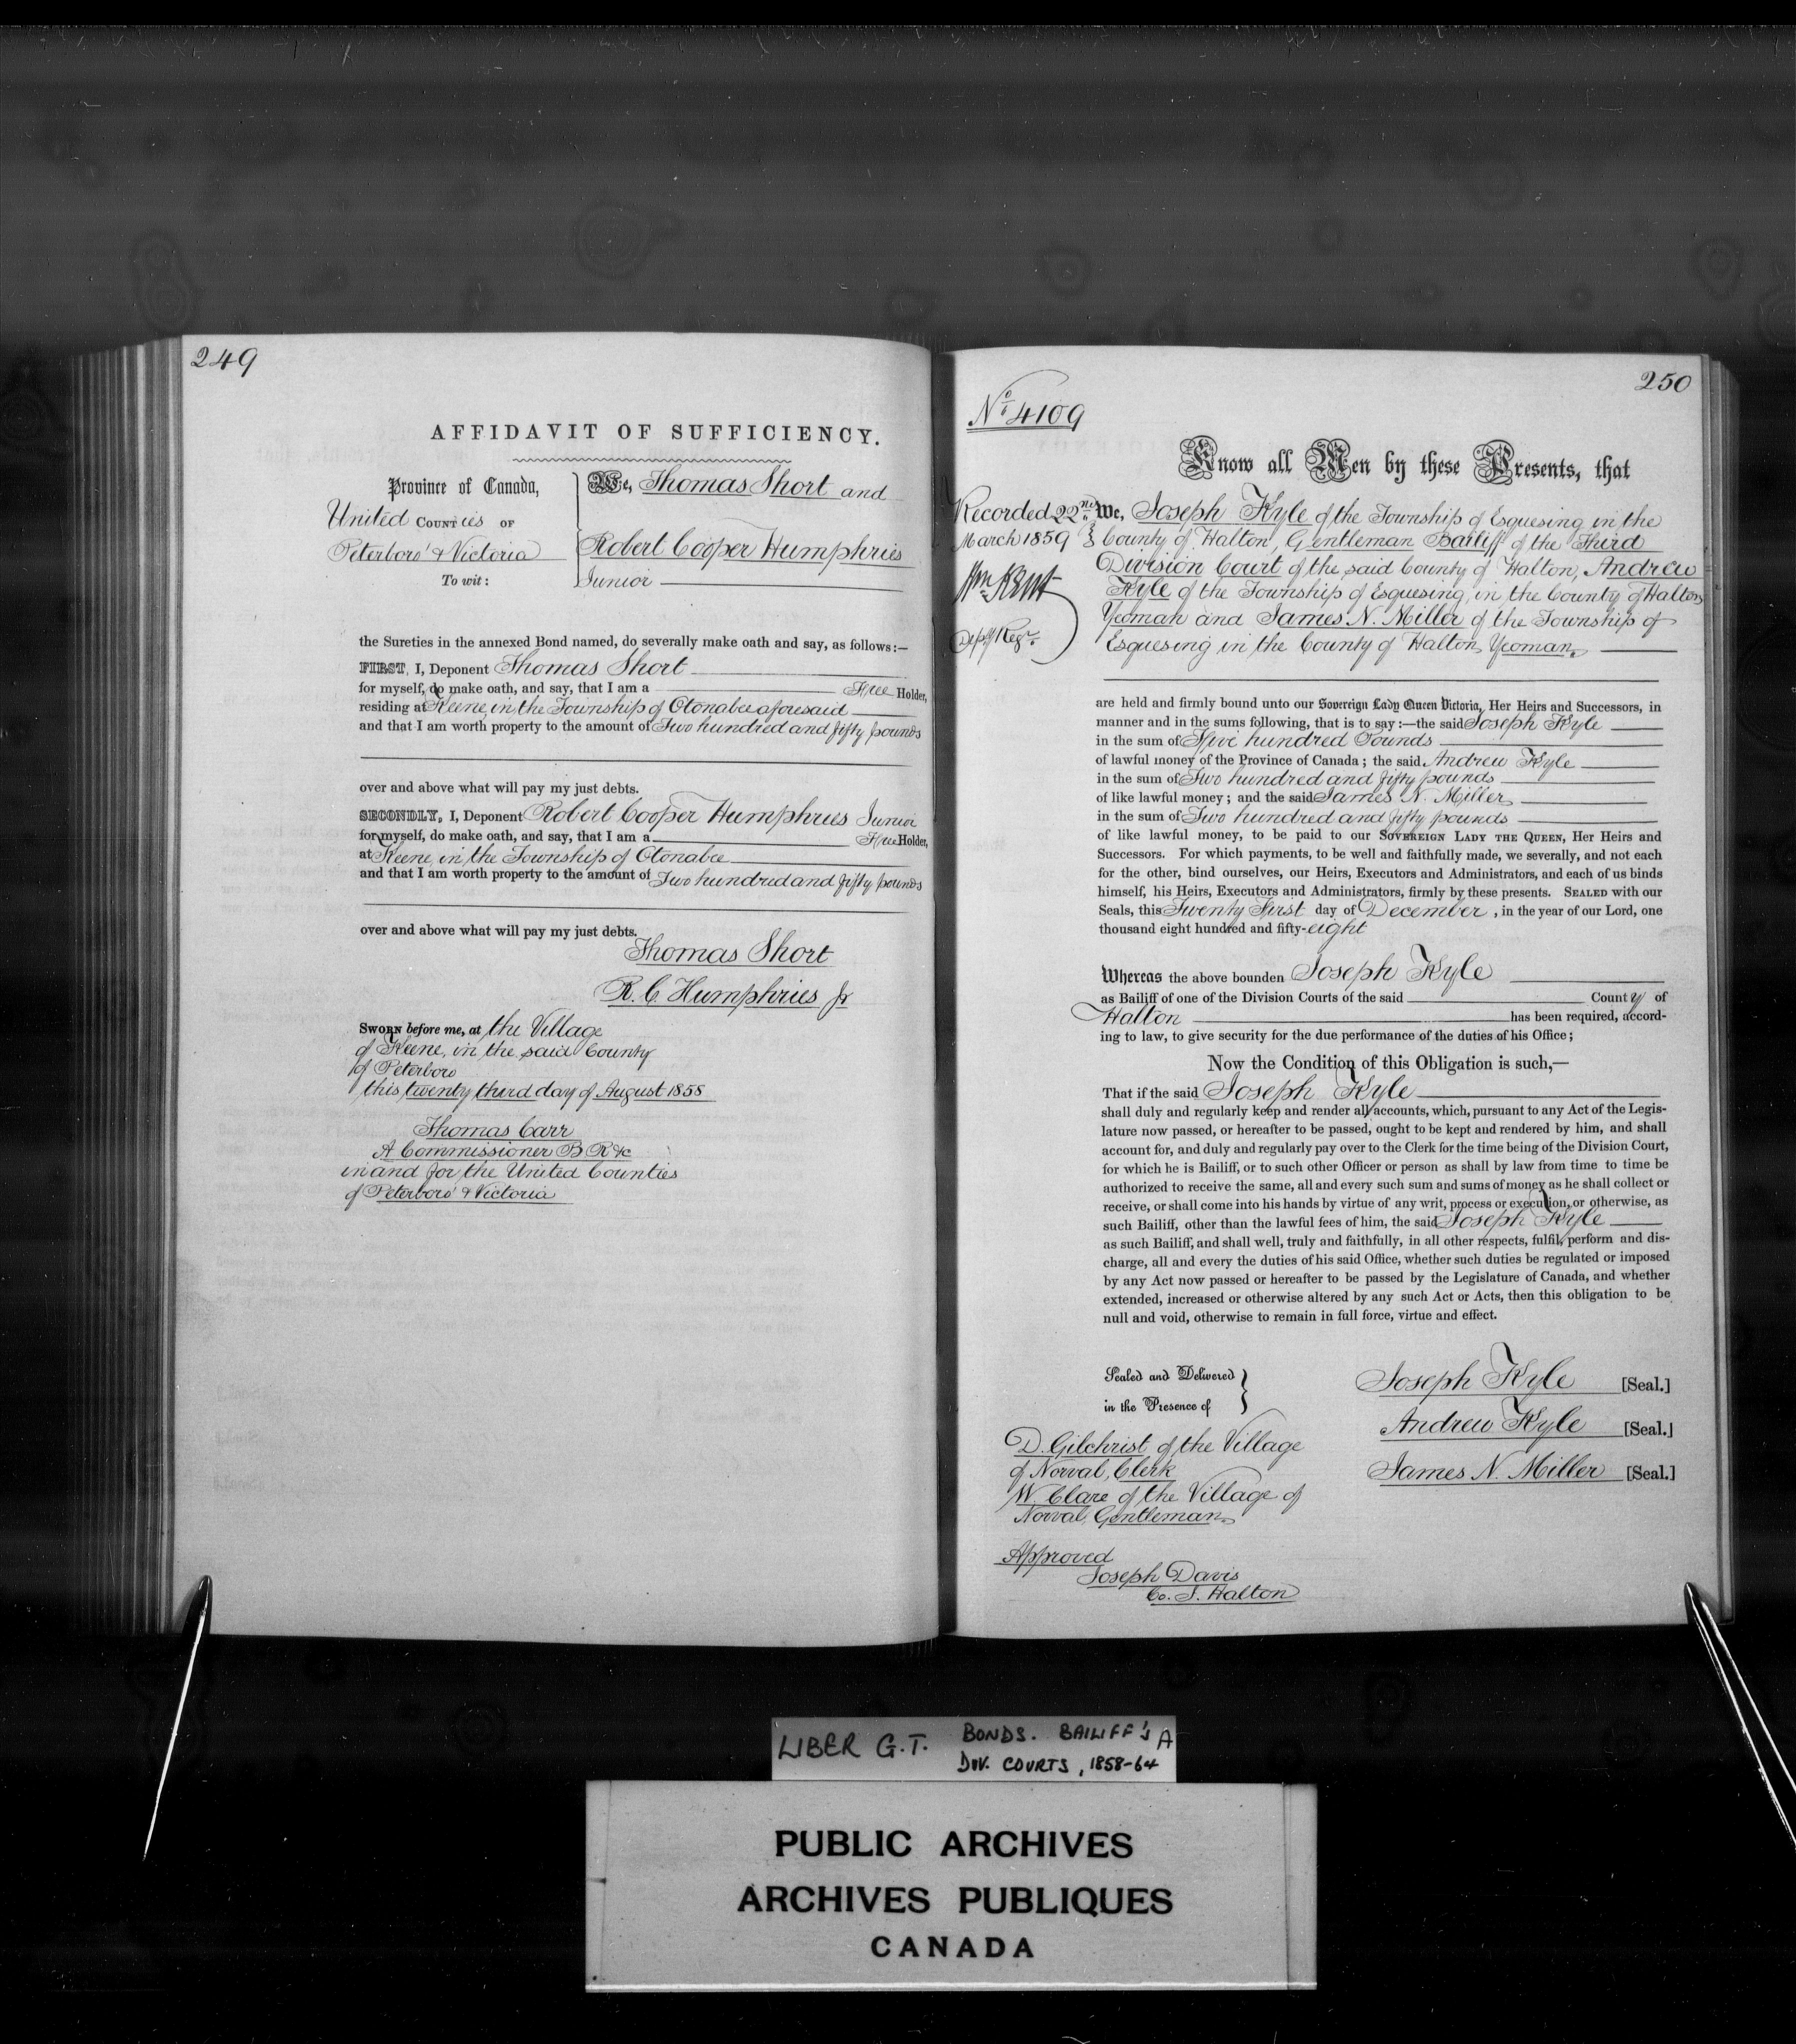 249
AFFIDAVIT OF SUFFICIENCY.
Province of Canada,
United COUNTies OF
Peterboro' & Victoria
To wit:
We, Thomas Short and
Robert Cooper Humphries
Junior
the Sureties in the annexed Bond named, do severally make oath and say, as follows:—
FIRST, I, Deponent Thomas Short
for myself, do make oath, and say, that I am a Free Holder,
residing at Keene, in the Township of Otonabee aforesaid
and that I am worth property to the amount of Two hundred and fifty pounds
over and above what will pay my just debts.
SECONDLY, I, Deponent Robert Cooper Humphries Junior
for myself, do make oath, and say, that I am a Free Holder,
at Keene, in the Township of Otonabee
and that I am worth property to the amount of Two hundred and fifty pounds
over and above what will pay my just debts.
Thomas Short
R. C. Humphries Jr
SWORN before me, at the Village
of Keene, in the said County
of Peterboro
this twenty third day of August 1858
Thomas Carr
A Commissioner B R &c
in and for the United Counties
of Peterboro' & Victoria
250
No. 4109
Know all Men by these Presents, that
Recorded 22nd
March 1859
Wm Kent
Depy Regr.
We, Joseph Kyle of the Township of Esquesing in the
County of Halton, Gentleman Bailiff of the Third
Division Court of the said County of Halton, Andrew
Kyle of the Township of Esquesing, in the County of Halton
Yeoman and James N. Miller of the Township of
Esquesing in the County of Halton, Yeoman,
are held and firmly bound unto our Sovereign Lady Queen Victoria, Her Heirs and Successors, in
manner and in the sums following, that is to say:—the said Joseph Kyle
in the sum of Five hundred Pounds
of lawful money of the Province of Canada; the said Andrew Kyle
in the sum of Two hundred and fifty pounds
of like lawful money; and the said James N. Miller
in the sum of Two hundred and fifty pounds
of like lawful money, to be paid to our SOVEREIGN LADY THE QUEEN, Her Heirs and
Successors. For which payments, to be well and faithfully made, we severally, and not each
for the other, bind ourselves, our Heirs, Executors and Administrators, and each of us binds
himself, his Heirs, Executors and Administrators, firmly by these presents. SEALED with our
Seals, this Twenty First day of December, in the year of our Lord, one
thousand eight hundred and fifty-eight
Whereas the above bounden Joseph Kyle
as Bailiff of one of the Division Courts of the said County of
Halton has been required, accord-
ing to law, to give security for the due performance of the duties of his Office;
Now the Condition of this Obligation is such,—
That if the said Joseph Kyle
shall duly and regularly keep and render all accounts, which, pursuant to any Act of the Legis-
lature now passed, or hereafter to be passed, ought to be kept and rendered by him, and shall
account for, and duly and regularly pay over to the Clerk for the time being of the Division Court,
for which he is Bailiff, or to such other Officer or person as shall by law from time to time be
authorized to receive the same, all and every such sum and sums of money as he shall collect or
receive, or shall come into his hands by virtue of any writ, process or execution, or otherwise, as
such Bailiff, other than the lawful fees of him, the said Joseph Kyle
as such Bailiff, and shall well, truly and faithfully, in all other respects, fulfil, perform and dis-
charge, all and every the duties of his said Office, whether such duties be regulated or imposed
by any Act now passed or hereafter to be passed by the Legislature of Canada, and whether
extended, increased or otherwise altered by any such Act or Acts, then this obligation to be
null and void, otherwise to remain in full force, virtue and effect.
Sealed and Delivered
in the Presence of
D. Gilchrist of the Village
of Norval, Clerk
W. Clare of the Village of
Norval, Gentleman
Joseph Kyle [Seal.]
Andrew Kyle [Seal.]
James N. Miller [Seal.]
Approved
Joseph Davis
Co. J. Halton
LIBER G.T. BONDS. BAILIFF'S A
DIV. COURTS, 1858-64
PUBLIC ARCHIVES
ARCHIVES PUBLIQUES
CANADA